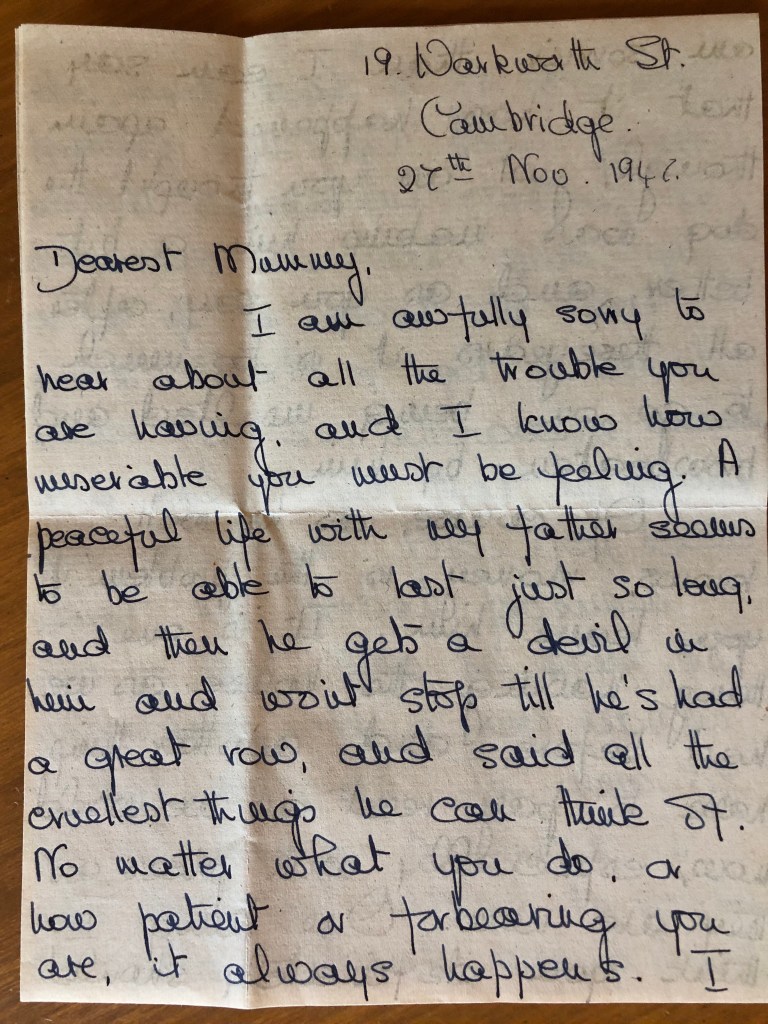 19. Warkworth St.
Cambridge.
27th Nov. 194
Dearest Mummy,
I am awfully sorry to
hear about all the trouble you
are having, and I know how
miserable you must be feeling. A
peaceful life with my father seems
to be able to last just so long,
and then he gets a devil in
him and won't stop till he's had
a great row, and said all the
cruellest things he can think of.
No matter what you do, or
how patient or forbearing you
are, it always happens. I